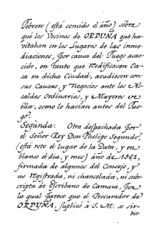 Febrero (está comido el año) sobre
que los Vecinos de ORDUÑA que ha-
vitaban en los Lugares de las inme-
diaciones, por causa del Fuego acae-
cido, en tanto que redificaran Ca-
sa en dicha Ciudad, acudiesen con
sus Causas, y Negocios ante los Al-
caldes Ordinarios, y Mayores de
ella, como lo havian antes del Fue-
go.
Segunda: Otra despachada por
el Señor Rey Don Phelipe Segundo,
(está roto el lugar de la Data, y en
blanco el dia, y mes) año de
firmada de algunos del Consejo, y
no registrada, ni chancellada, ni sub-
scripta de Escribano de Camara, por
la qual parece que el Procurador de
ORDUÑA, suplicó a S. M. se